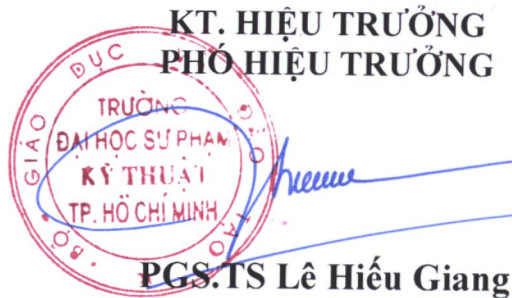 KT. HIỆU TRƯỞNG
PHÓ HIỆU TRƯỞNG
BỘ GIÁO DỤC VÀ ĐÀO TẠO
TRƯỜNG
ĐẠI HỌC SƯ PHẠM
KỸ THUẬT
TP. HỒ CHÍ MINH
PGS.TS Lê Hiếu Giang